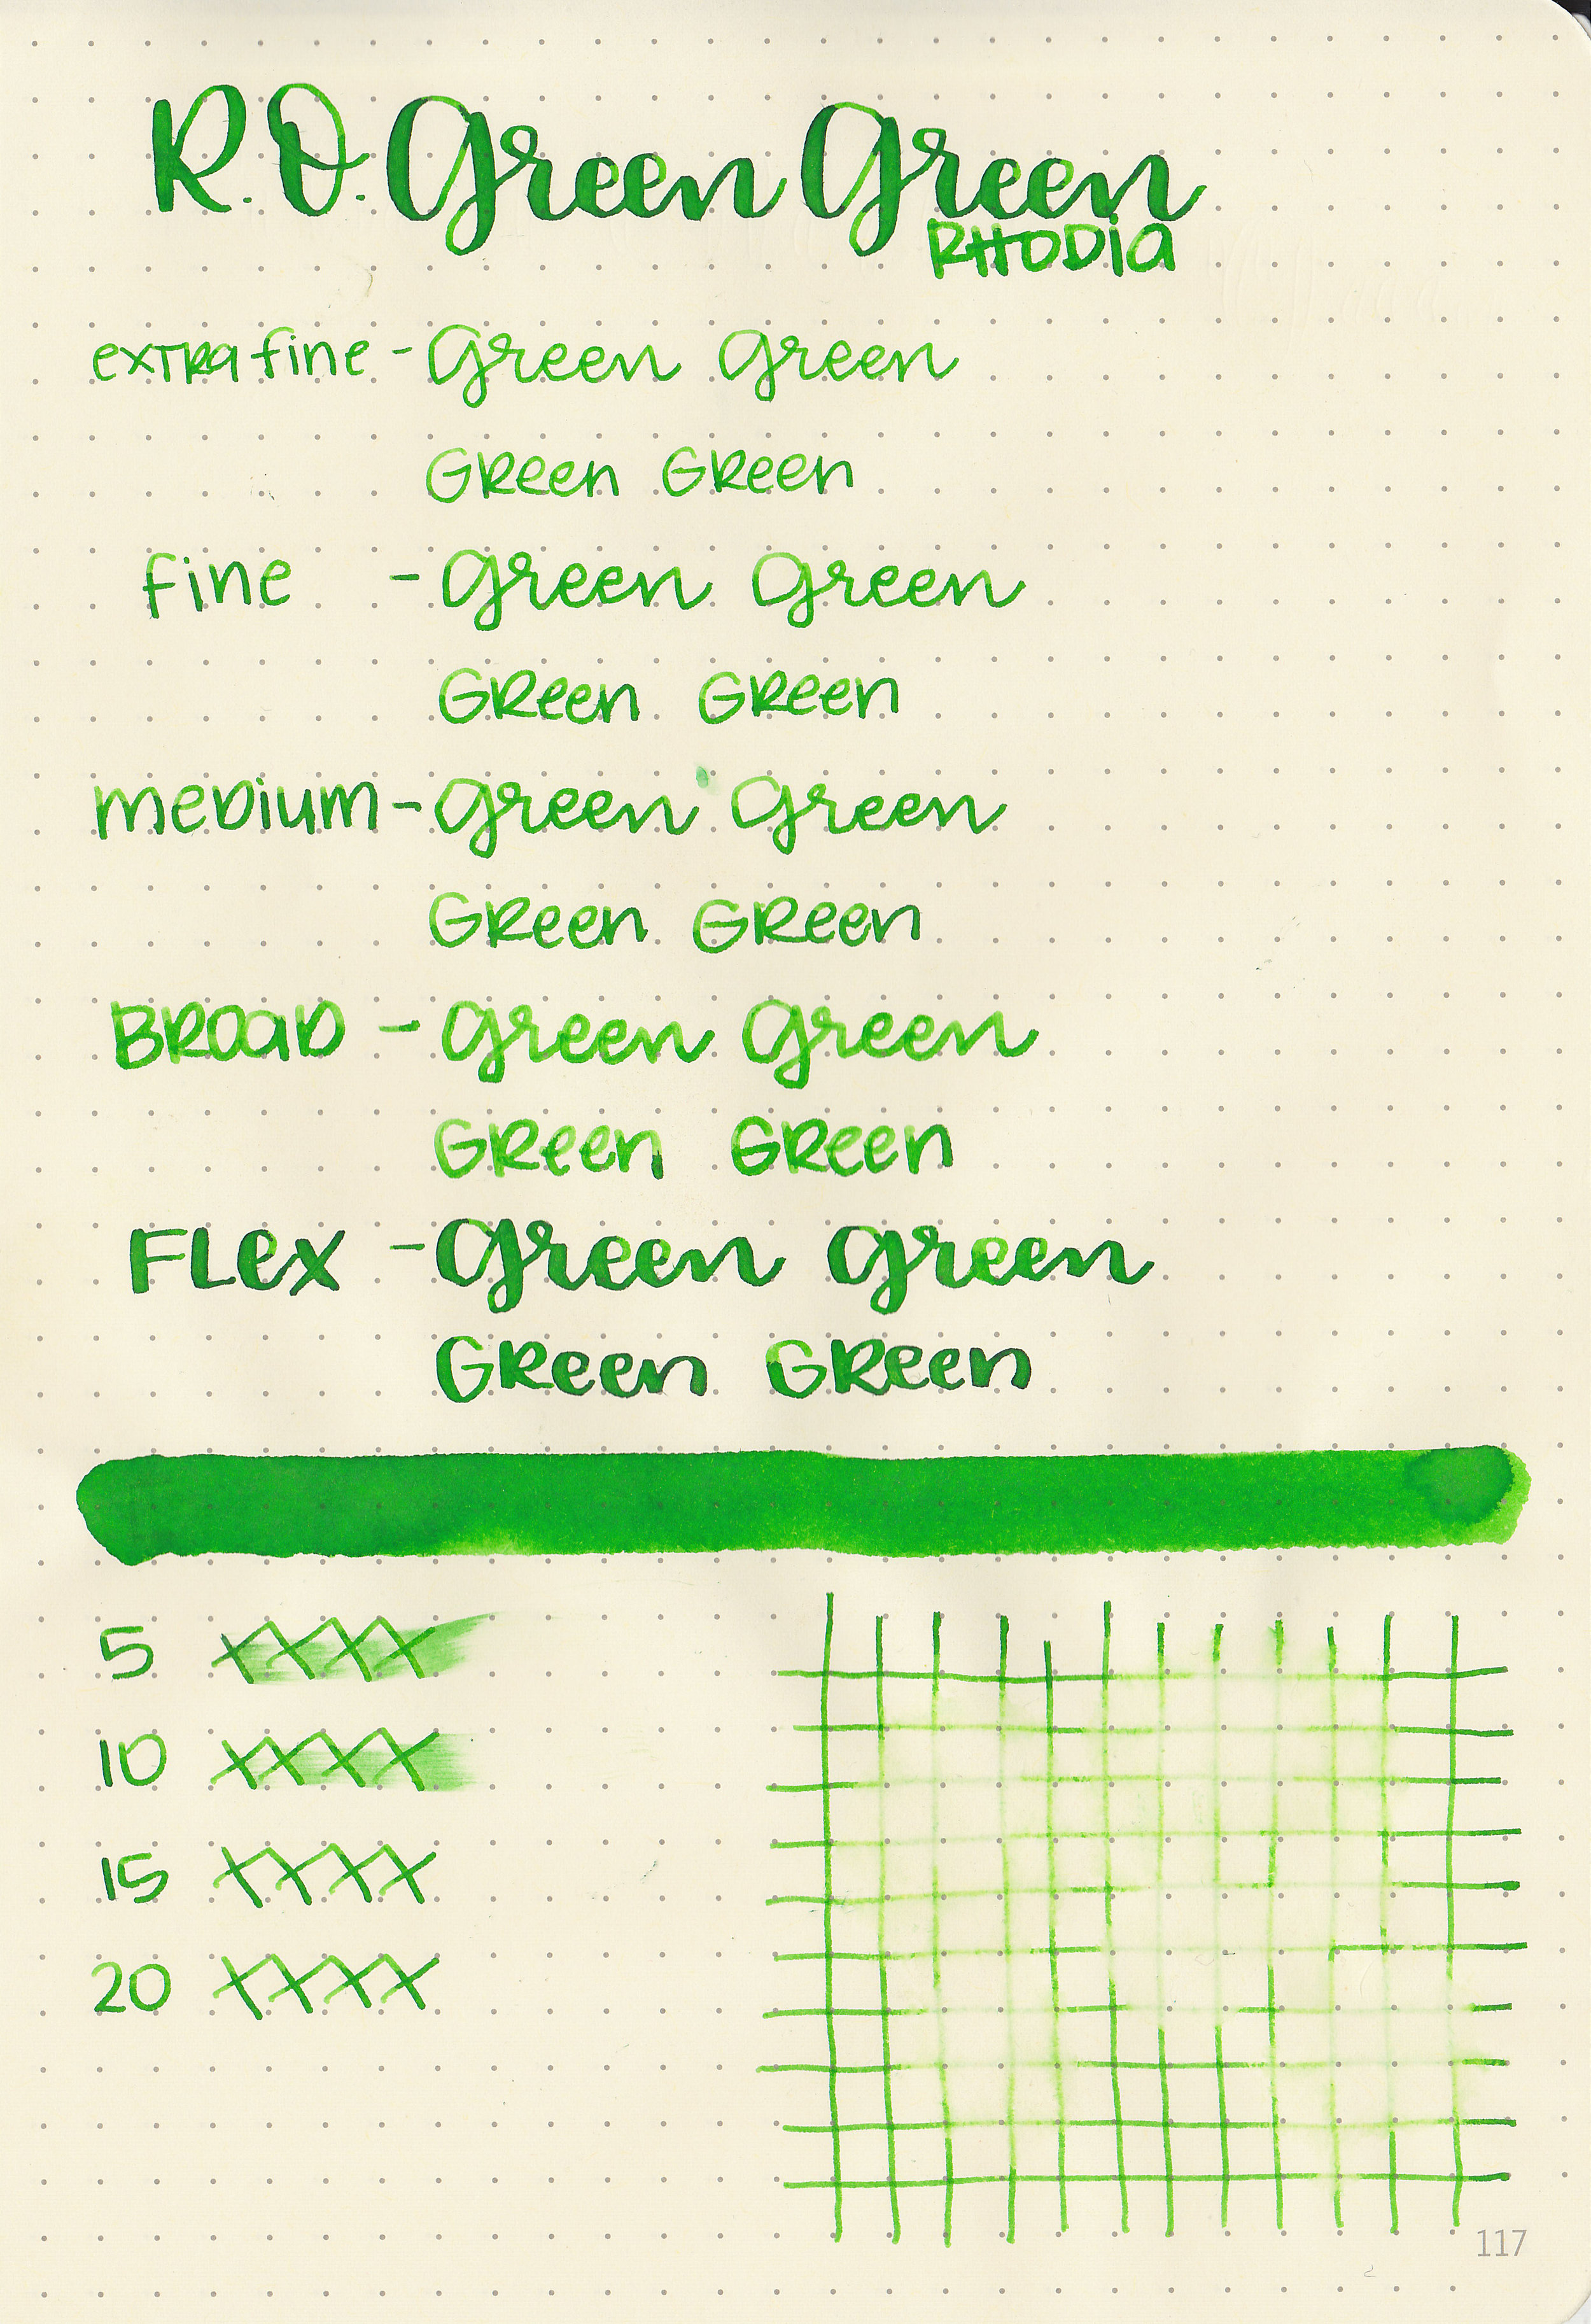 R.O. Green Green
RHODIA
extra fine - Green Green
Green Green
fine - Green Green
Green Green
medium - Green Green
Green Green
BROAD - Green Green
Green Green
FLex - Green Green
Green Green
5 XXXX
10 XXXX
15 XXXX
20 XXXX
117